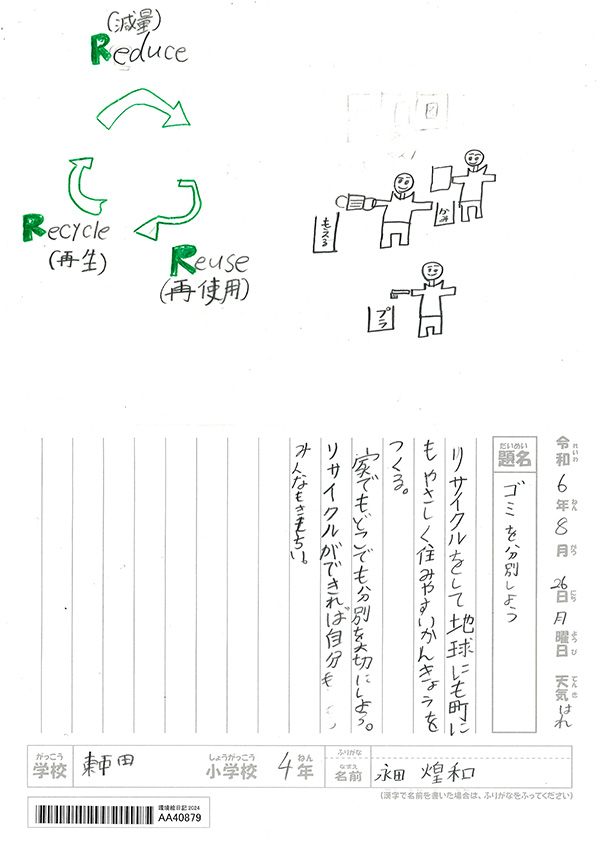 (減量)
Reduce
Recycle
(再生)
Reuse
(再使用)
もえる
かみ
プラ
令和6年8月26日月曜日 天気はれ
れいわ ねん がつ にち ようび てんき
だいめい
題名
ゴミを分別しよう
リサイクルをして地球にも町に
もやさしく住みやすいかんきょうを
つくる。
家でもどこでも分別を大切にしよう。
リサイクルができれば自分も
みんなもきもちいい。
がっこう
学校
しょうがっこう
小学校
4年
ねん
ふりがな
なまえ
名前
永田 煌和
(漢字で名前を書いた場合は、ふりがなをふってください)
環境絵日記2024
AA40879